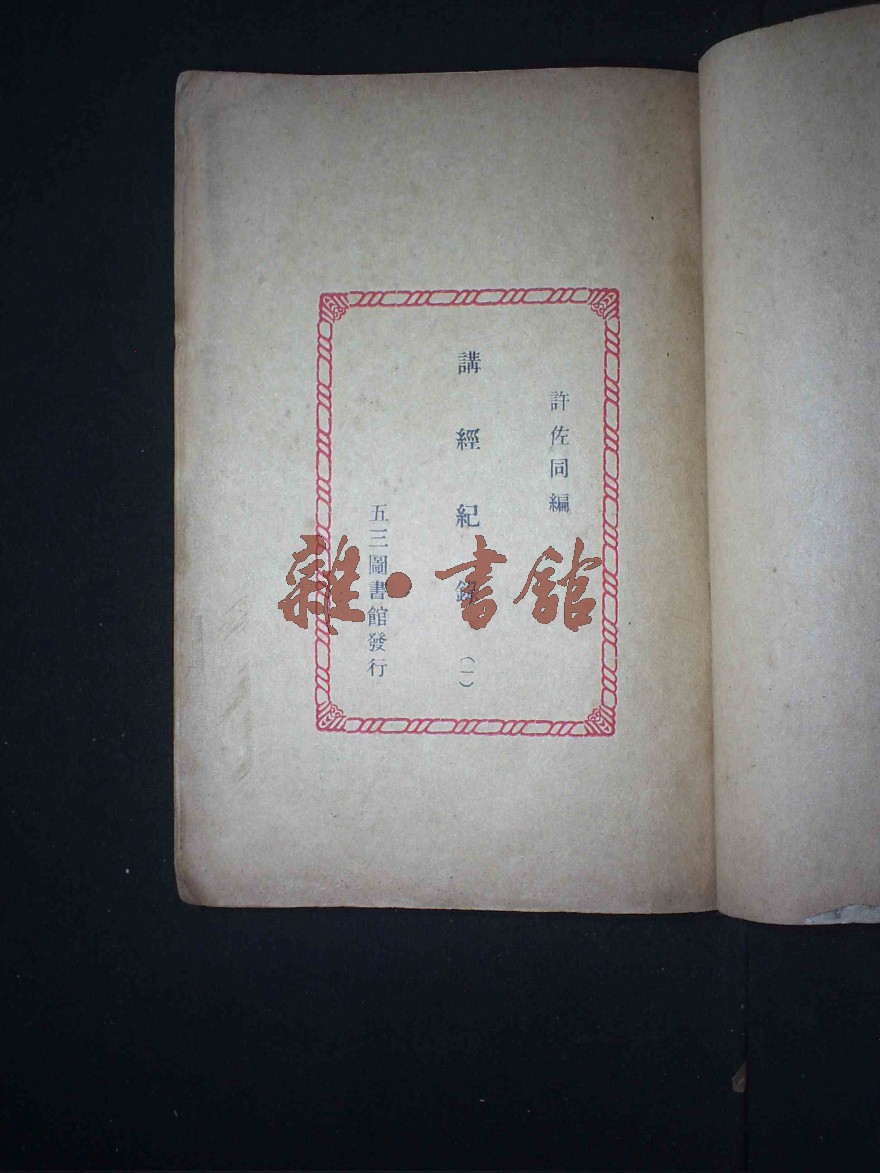 許佐同編
講經紀錄(一)
五三圖書館發行
雜·書館